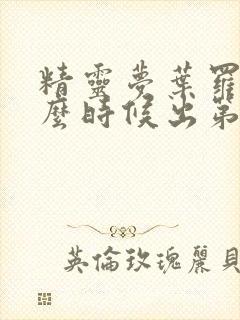 精靈夢葉羅
麼時候出第
英倫玫瑰麗貝